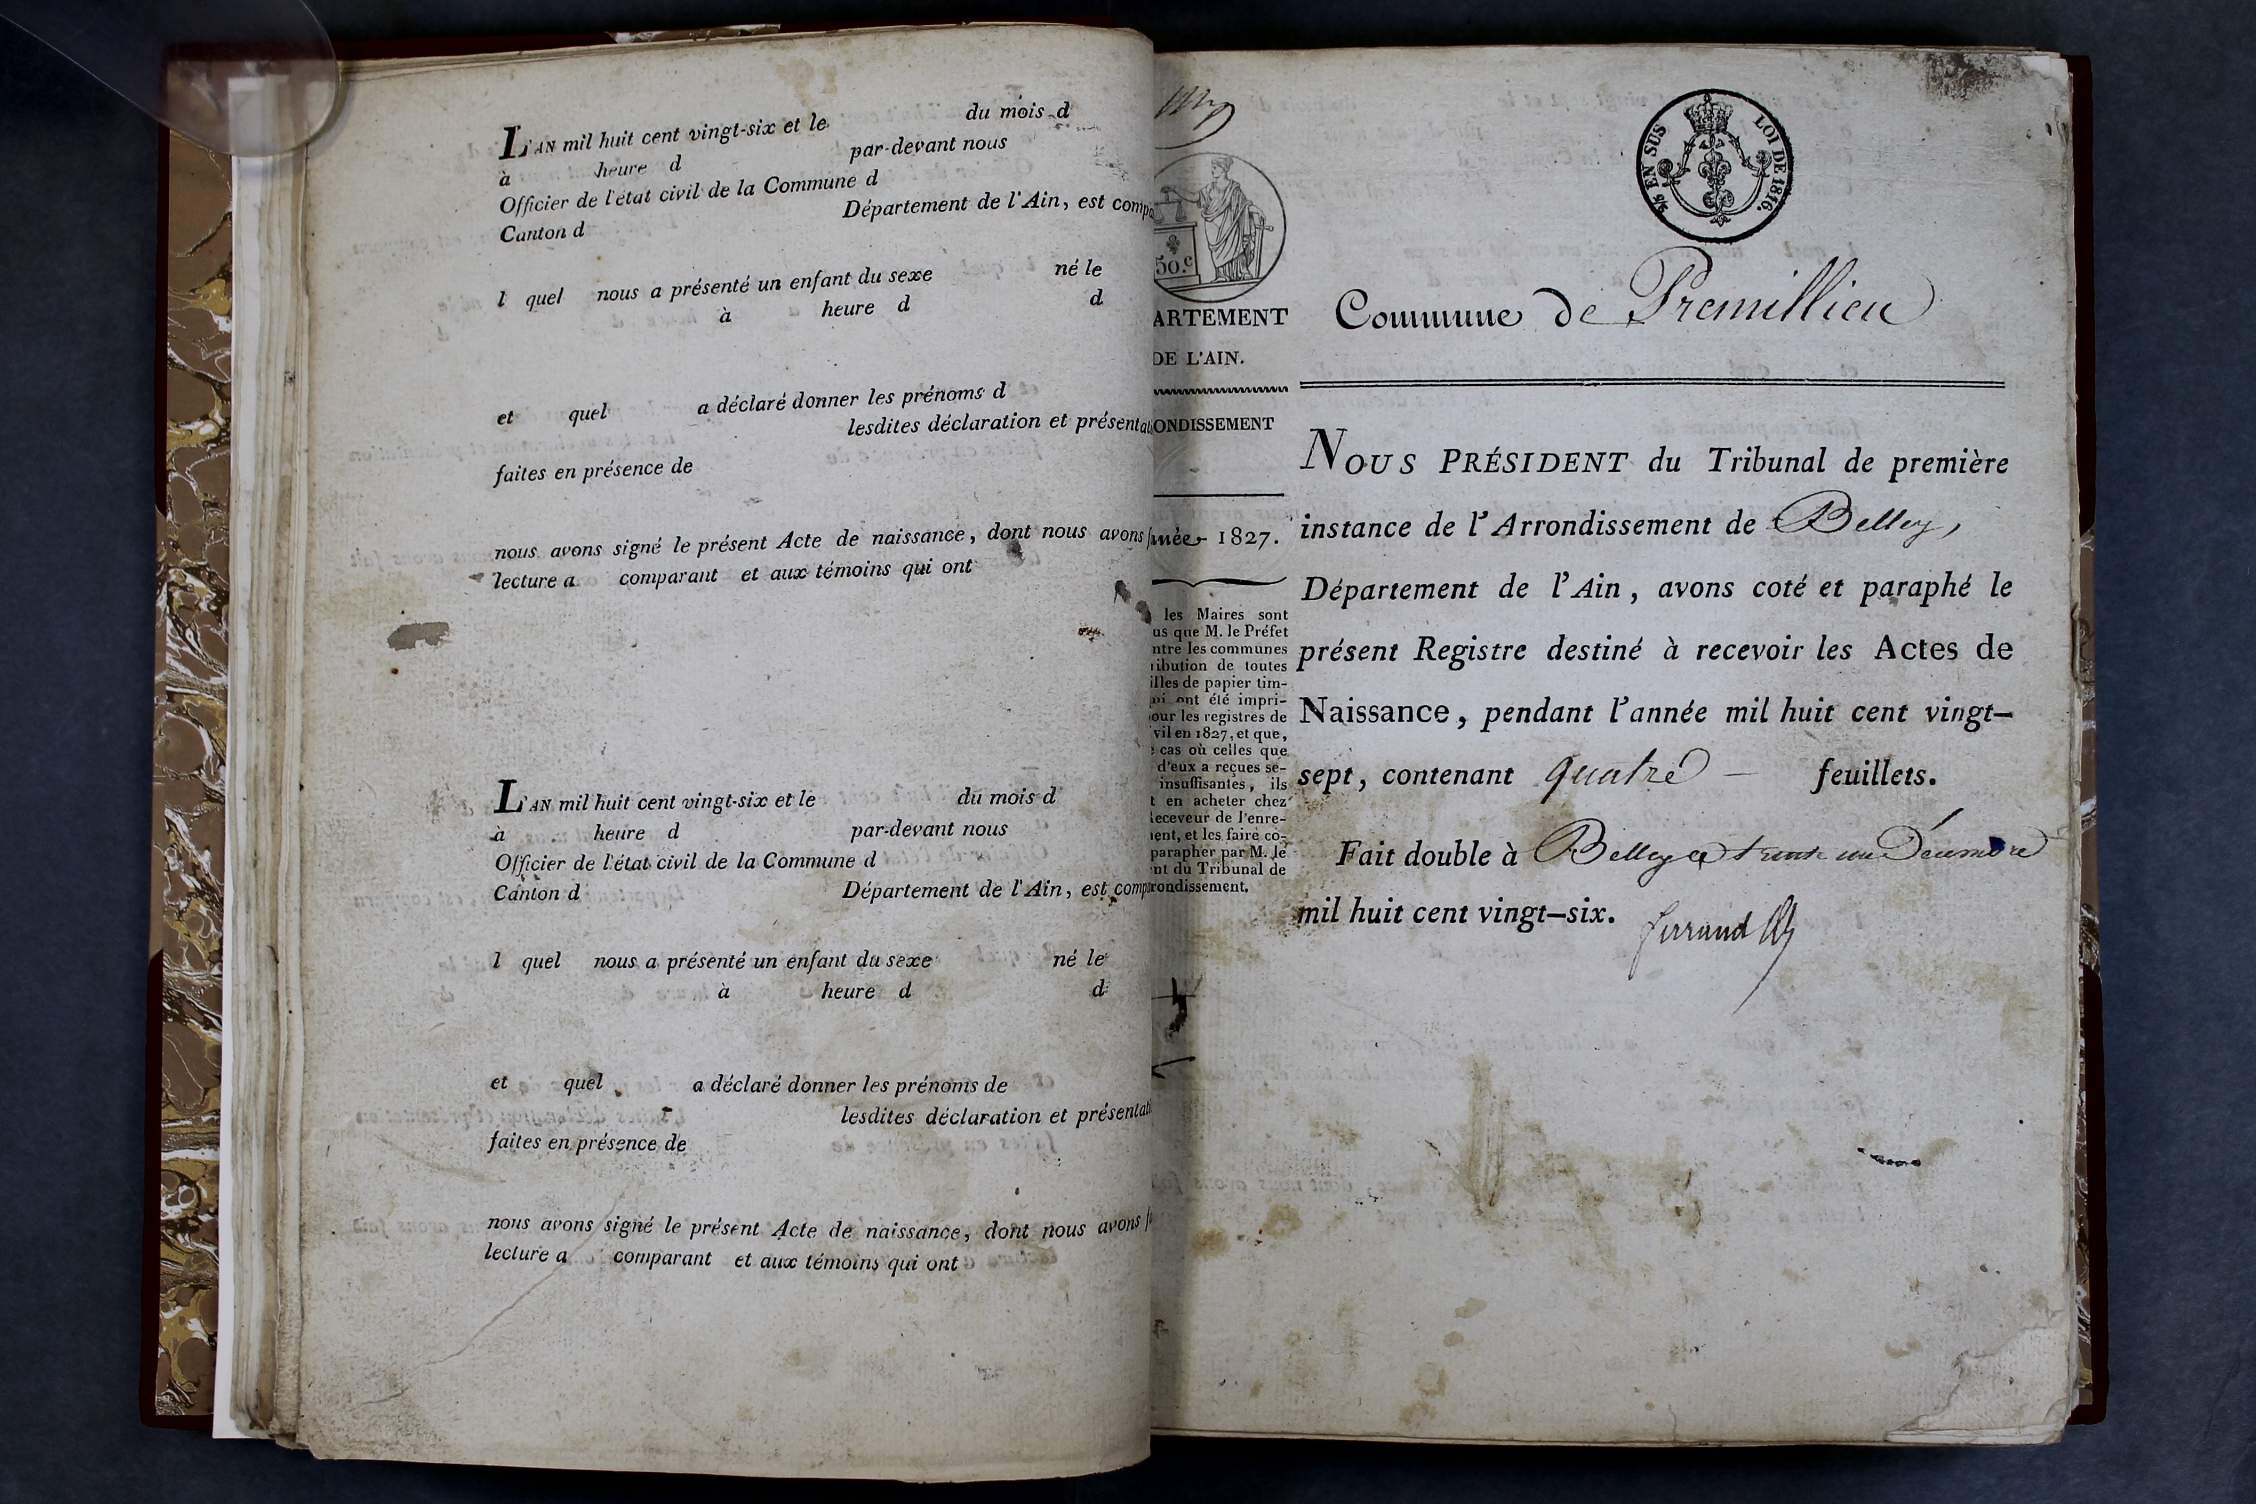 L'AN mil huit cent vingt-six et le du mois d
à heure d par-devant nous
Officier de l'état civil de la Commune d
Canton d Département de l'Ain, est comp
l quel nous a présenté un enfant du sexe né le
à heure d d
et quel a déclaré donner les prénoms d
lesdites déclaration et présentat
faites en présence de
nous avons signé le présent Acte de naissance, dont nous avons
lecture a comparant et aux témoins qui ont
L'AN mil huit cent vingt-six et le du mois d
à heure d par-devant nous
Officier de l'état civil de la Commune d
Canton d Département de l'Ain, est comp
l quel nous a présenté un enfant du sexe né le
à heure d d
et quel a déclaré donner les prénoms de
lesdites déclaration et présentat
faites en présence de
nous avons signé le présent Acte de naissance, dont nous avons
lecture a comparant et aux témoins qui ont
50.c
ARTEMENT
DE L'AIN.
ONDISSEMENT
nnée 1827.
les Maires sont
us que M. le Préfet
ntre les communes
ribution de toutes
illes de papier tim-
ui ont été impri-
our les registres de
vil en 1827, et que,
cas où celles que
d'eux a reçues se-
insuffisantes, ils
t en acheter chez
eceveur de l'enre-
ent, et les faire co-
parapher par M. le
nt du Tribunal de
rondissement.
EN SUS LOI DE 1816.
Commune de Premillieu
NOUS PRÉSIDENT du Tribunal de première
instance de l'Arrondissement de Belley,
Département de l'Ain, avons coté et paraphé le
présent Registre destiné à recevoir les Actes de
Naissance, pendant l'année mil huit cent vingt-
sept, contenant quatre feuillets.
Fait double à Belley ce trente un Décembre
mil huit cent vingt-six.
ferrand